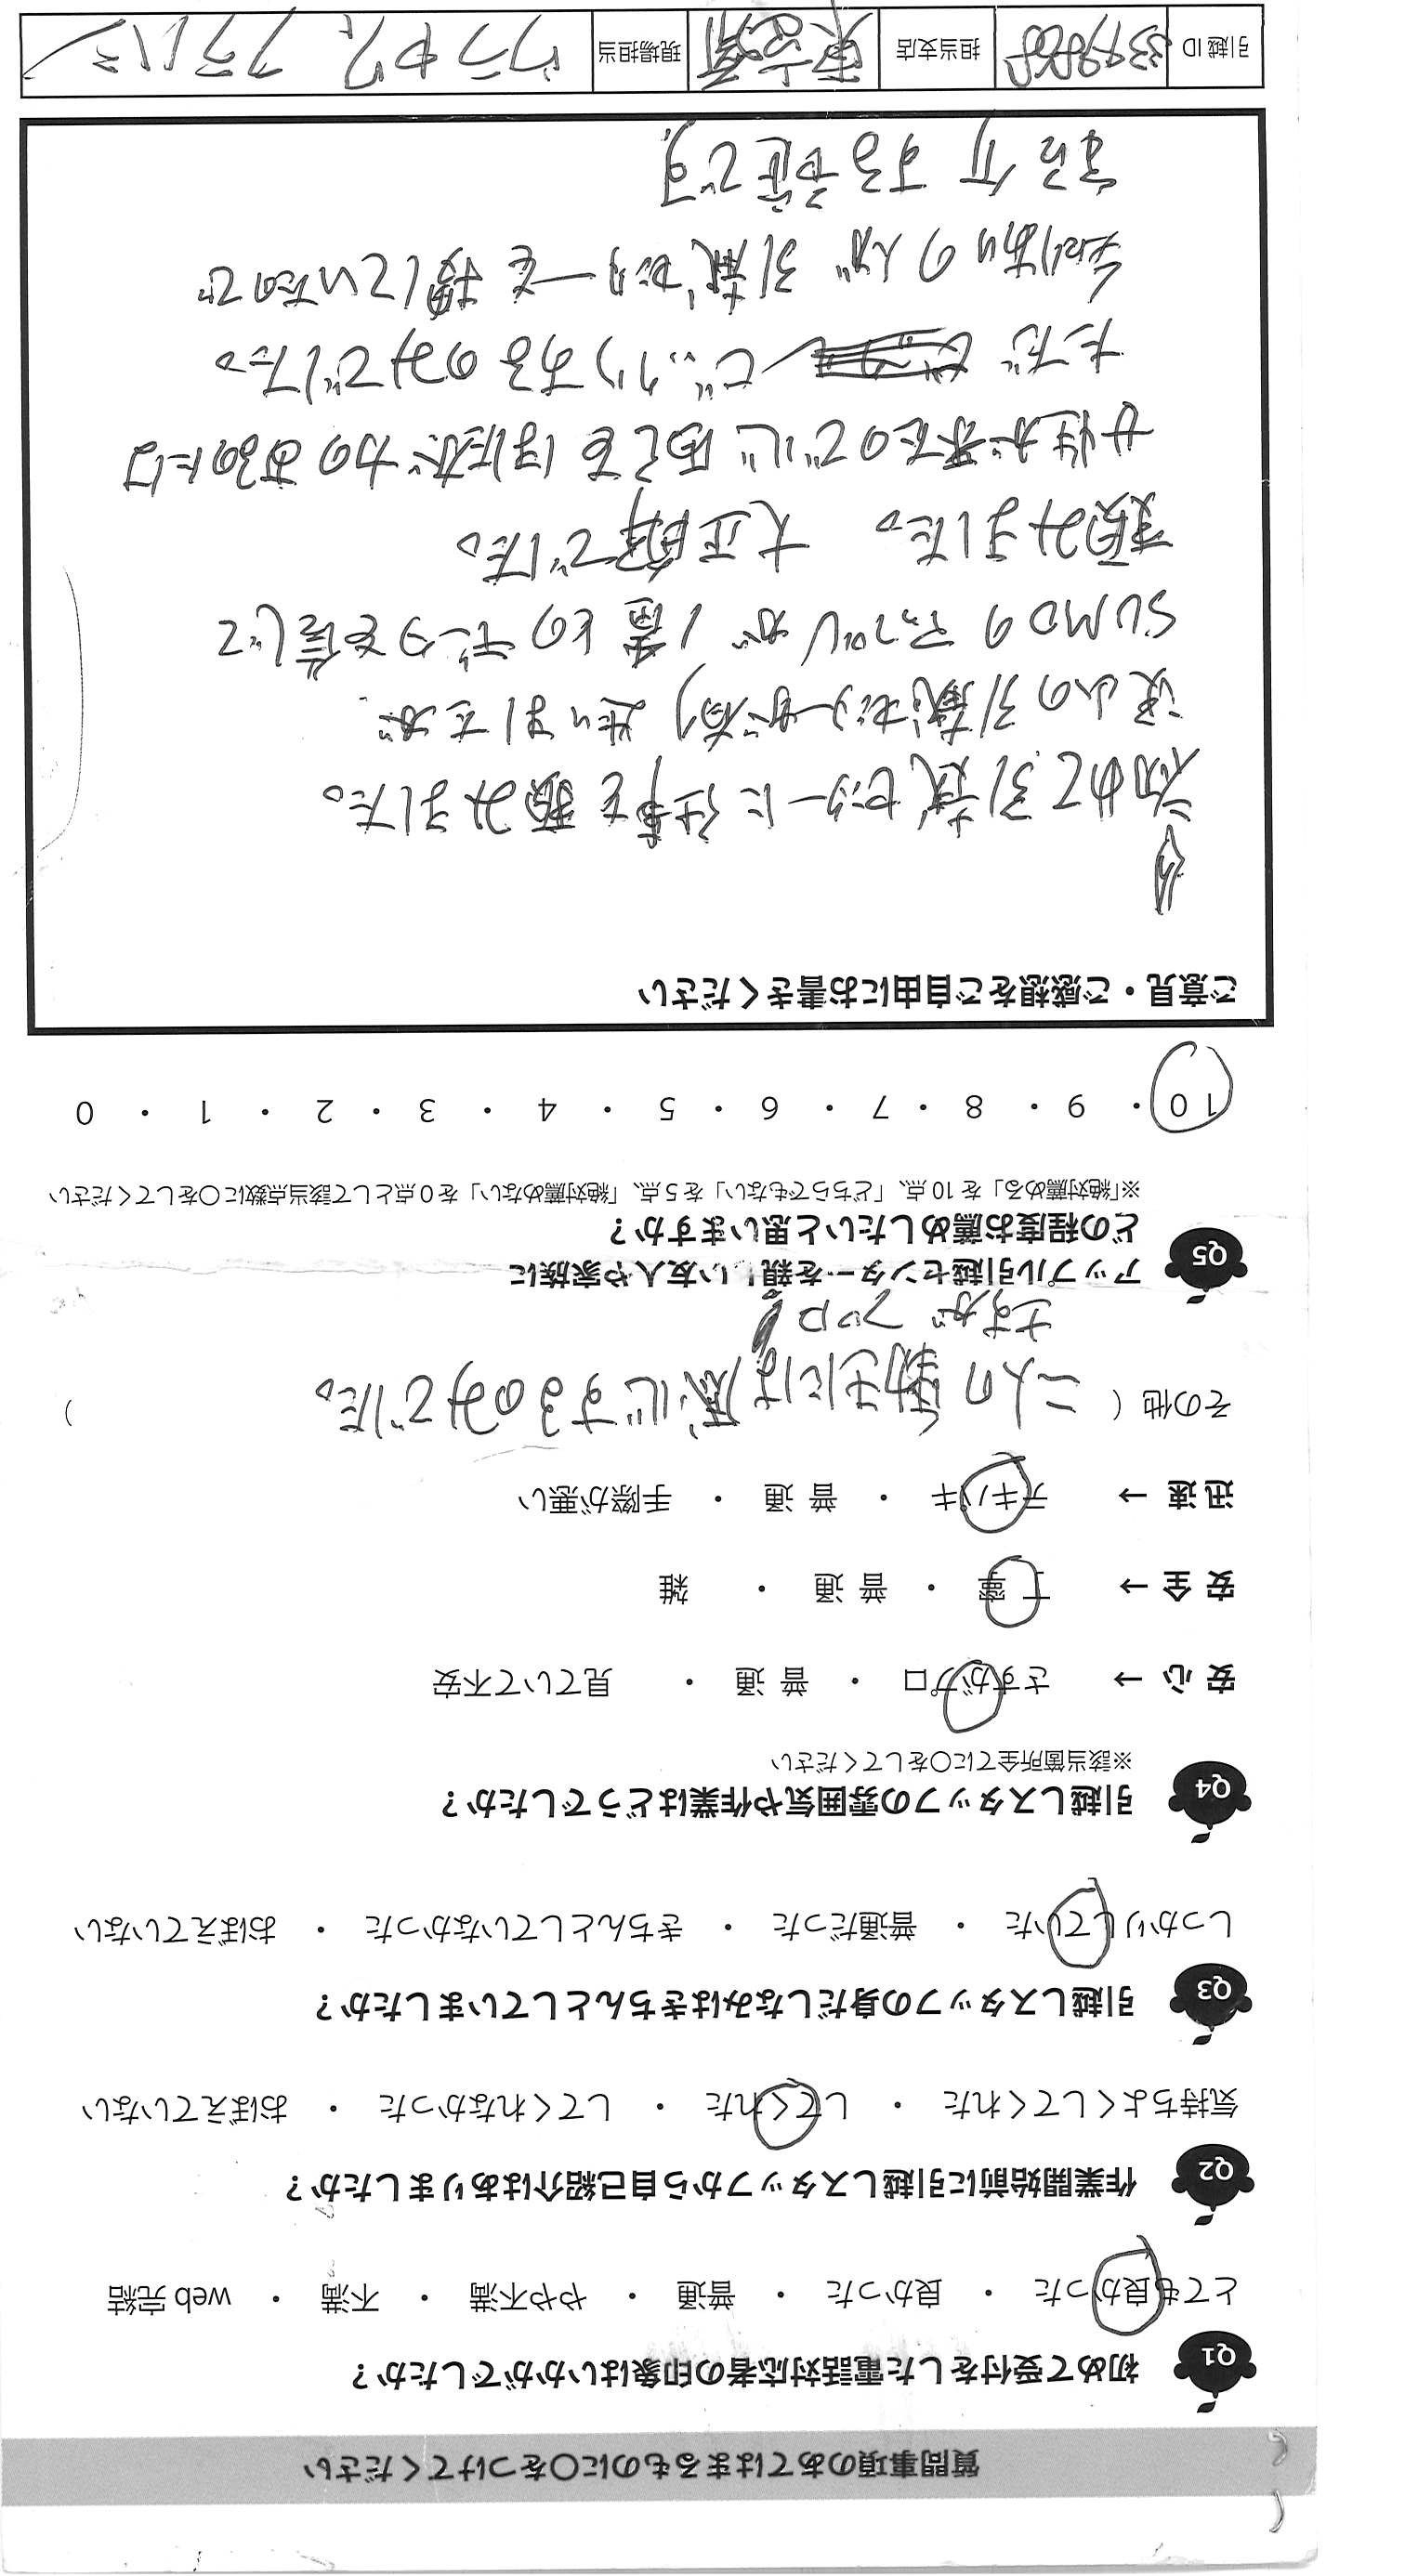 質問事項のあてはまるものに〇をつけてください
Q1 初めて受付をした電話対応者の印象はいかがでしたか？
とても良かった ・ 良かった ・ 普通 ・ やや不満 ・ 不満 ・ web 完結
Q2 作業開始前に引越しスタッフから自己紹介はありましたか？
気持ちよくしてくれた ・ してくれた ・ してくれなかった ・ おぼえていない
Q3 引越しスタッフの身だしなみはきちんとしていましたか？
しっかりしていた ・ 普通だった ・ きちんとしていなかった ・ おぼえていない
Q4 引越しスタッフの雰囲気や作業はどうでしたか？
※該当箇所全てに〇をしてください
安心 → さすがプロ ・ 普通 ・ 見ていて不安
安全 → 丁寧 ・ 普通 ・ 雑
迅速 → テキパキ ・ 普通 ・ 手際が悪い
その他 ( 二人の動きには感心するのみでした。 )
さすが プロ
Q5 アップル引越センターを親しい友人や家族に
どの程度お薦めしたいと思いますか？
※「絶対薦める」を 10 点、「どちらでもない」を 5 点、「絶対薦めない」を 0 点として該当点数に〇をしてください
10 ・ 9 ・ 8 ・ 7 ・ 6 ・ 5 ・ 4 ・ 3 ・ 2 ・ 1 ・ 0
ご意見・ご感想をご自由にお書きください
初めて引越センターに仕事を頼みました。
沢山の引越センターが有り迷いましたが
SUMOのアップルが1番とのデータを信じて
頼みました。 大正解でした。
女性が来たので心配しましたが力のあるのには
ただ ビックリするのみでした。
知りあいの人が引越センターを探していたので
紹介する予定です。
引越 ID 担当支店 現場担当